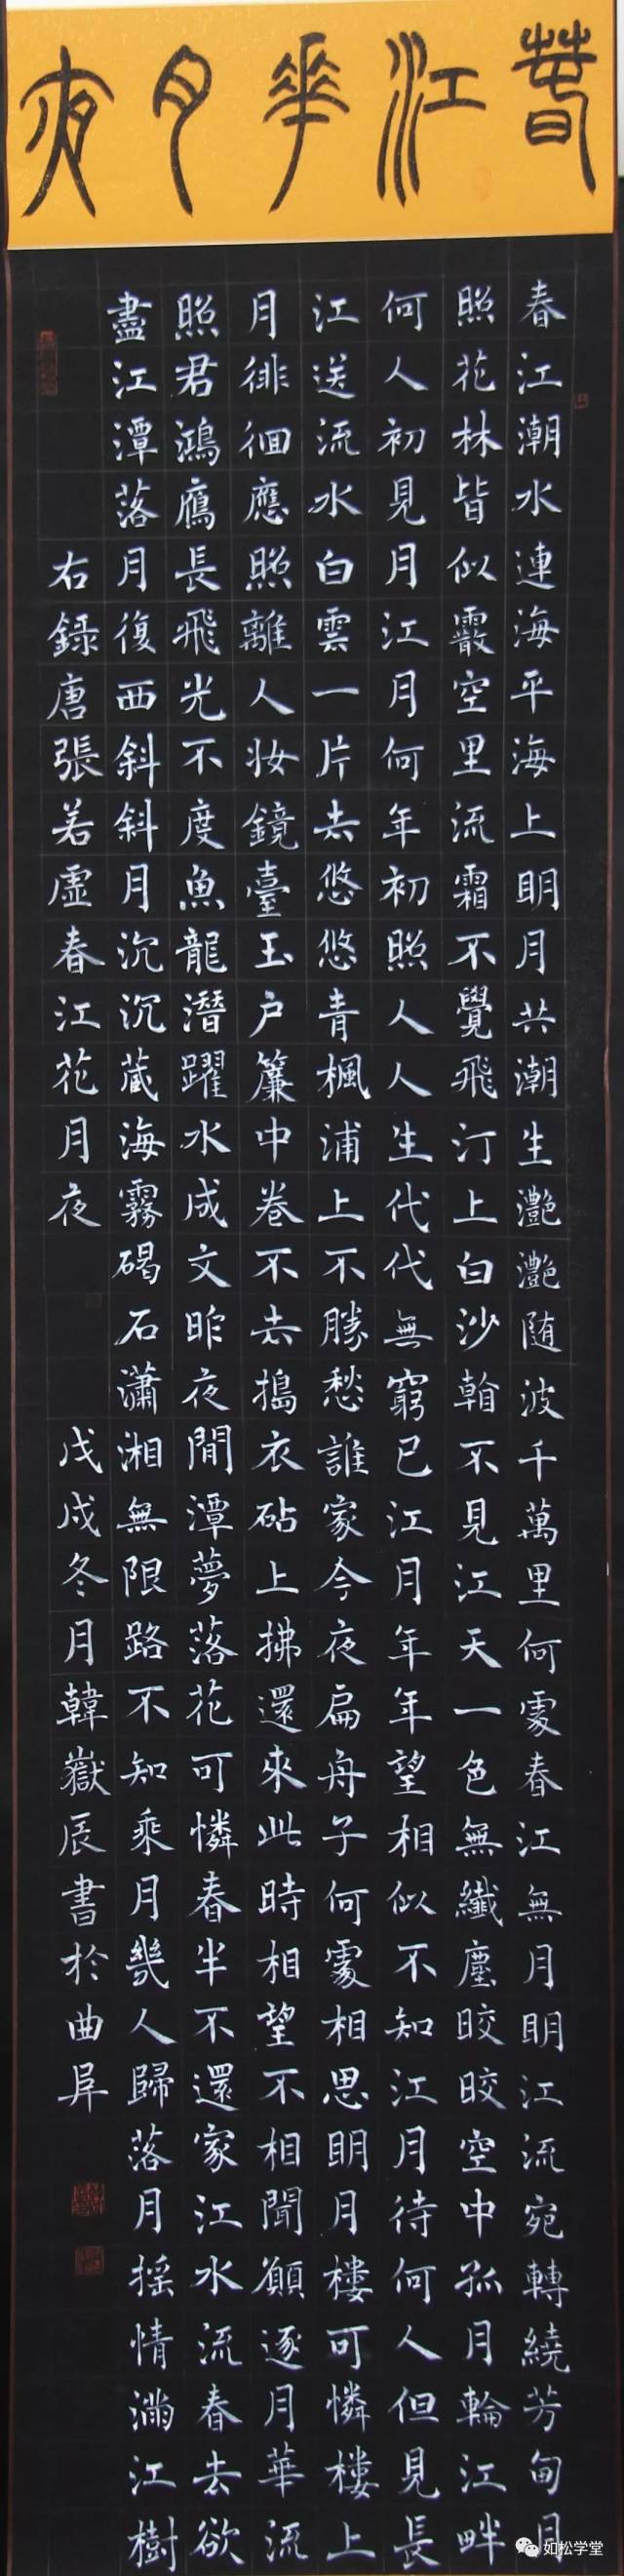 春江花月夜
春江潮水連海平海上明月共潮生灧灧随波千萬里何處春江無月明江流宛轉繞芳甸月
照花林皆似霰空里流霜不覺飛汀上白沙翰不見江天一色無纖塵皎皎空中孤月輪江畔
何人初見月江月何年初照人人生代代無窮已江月年年望相似不知江月待何人但見長
江送流水白雲一片去悠悠青楓浦上不勝愁誰家今夜扁舟子何處相思明月樓可憐樓上
月徘徊應照離人妝鏡臺玉户簾中卷不去搗衣砧上拂還來此時相望不相聞願逐月華流
照君鴻鴈長飛光不度魚龍潛躍水成文昨夜閒潭夢落花可憐春半不還家江水流春去欲
盡江潭落月復西斜斜月沉沉藏海霧碣石瀟湘無限路不知乘月幾人歸落月揺情滿江樹
右録唐張若虛春江花月夜
戊戌冬月韓嶽辰書於曲阜
如松学堂